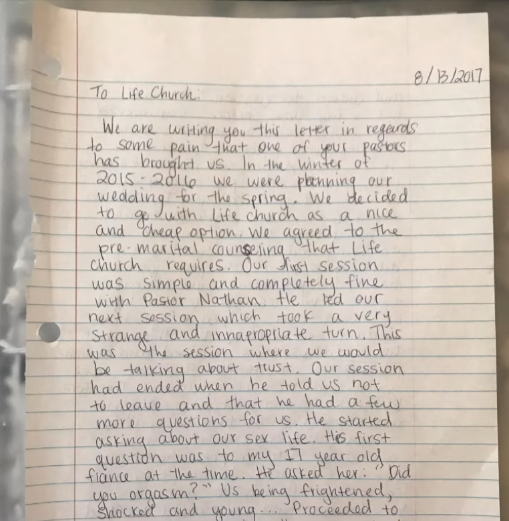 8/13/2017
To Life Church:
We are writing you this letter in regards
to some pain that one of your pastors
has brought us. In the winter of
2015-2016 we were planning our
wedding for the spring. We decided
to go with Life church as a nice
and cheap option. We agreed to the
pre-marital counseling that Life
church requires. Our first session
was simple and completely fine
with Pastor Nathan. He led our
next session which took a very
strange and innapropriate turn. This
was the session where we would
be talking about trust. Our session
had ended when he told us not
to leave and that he had a few
more questions for us. He started
asking about our sex life. His first
question was to my 17 year old
fiance at the time. He asked her: "Did
you orgasm?" Us being frightened,
shocked and young... Proceeded to